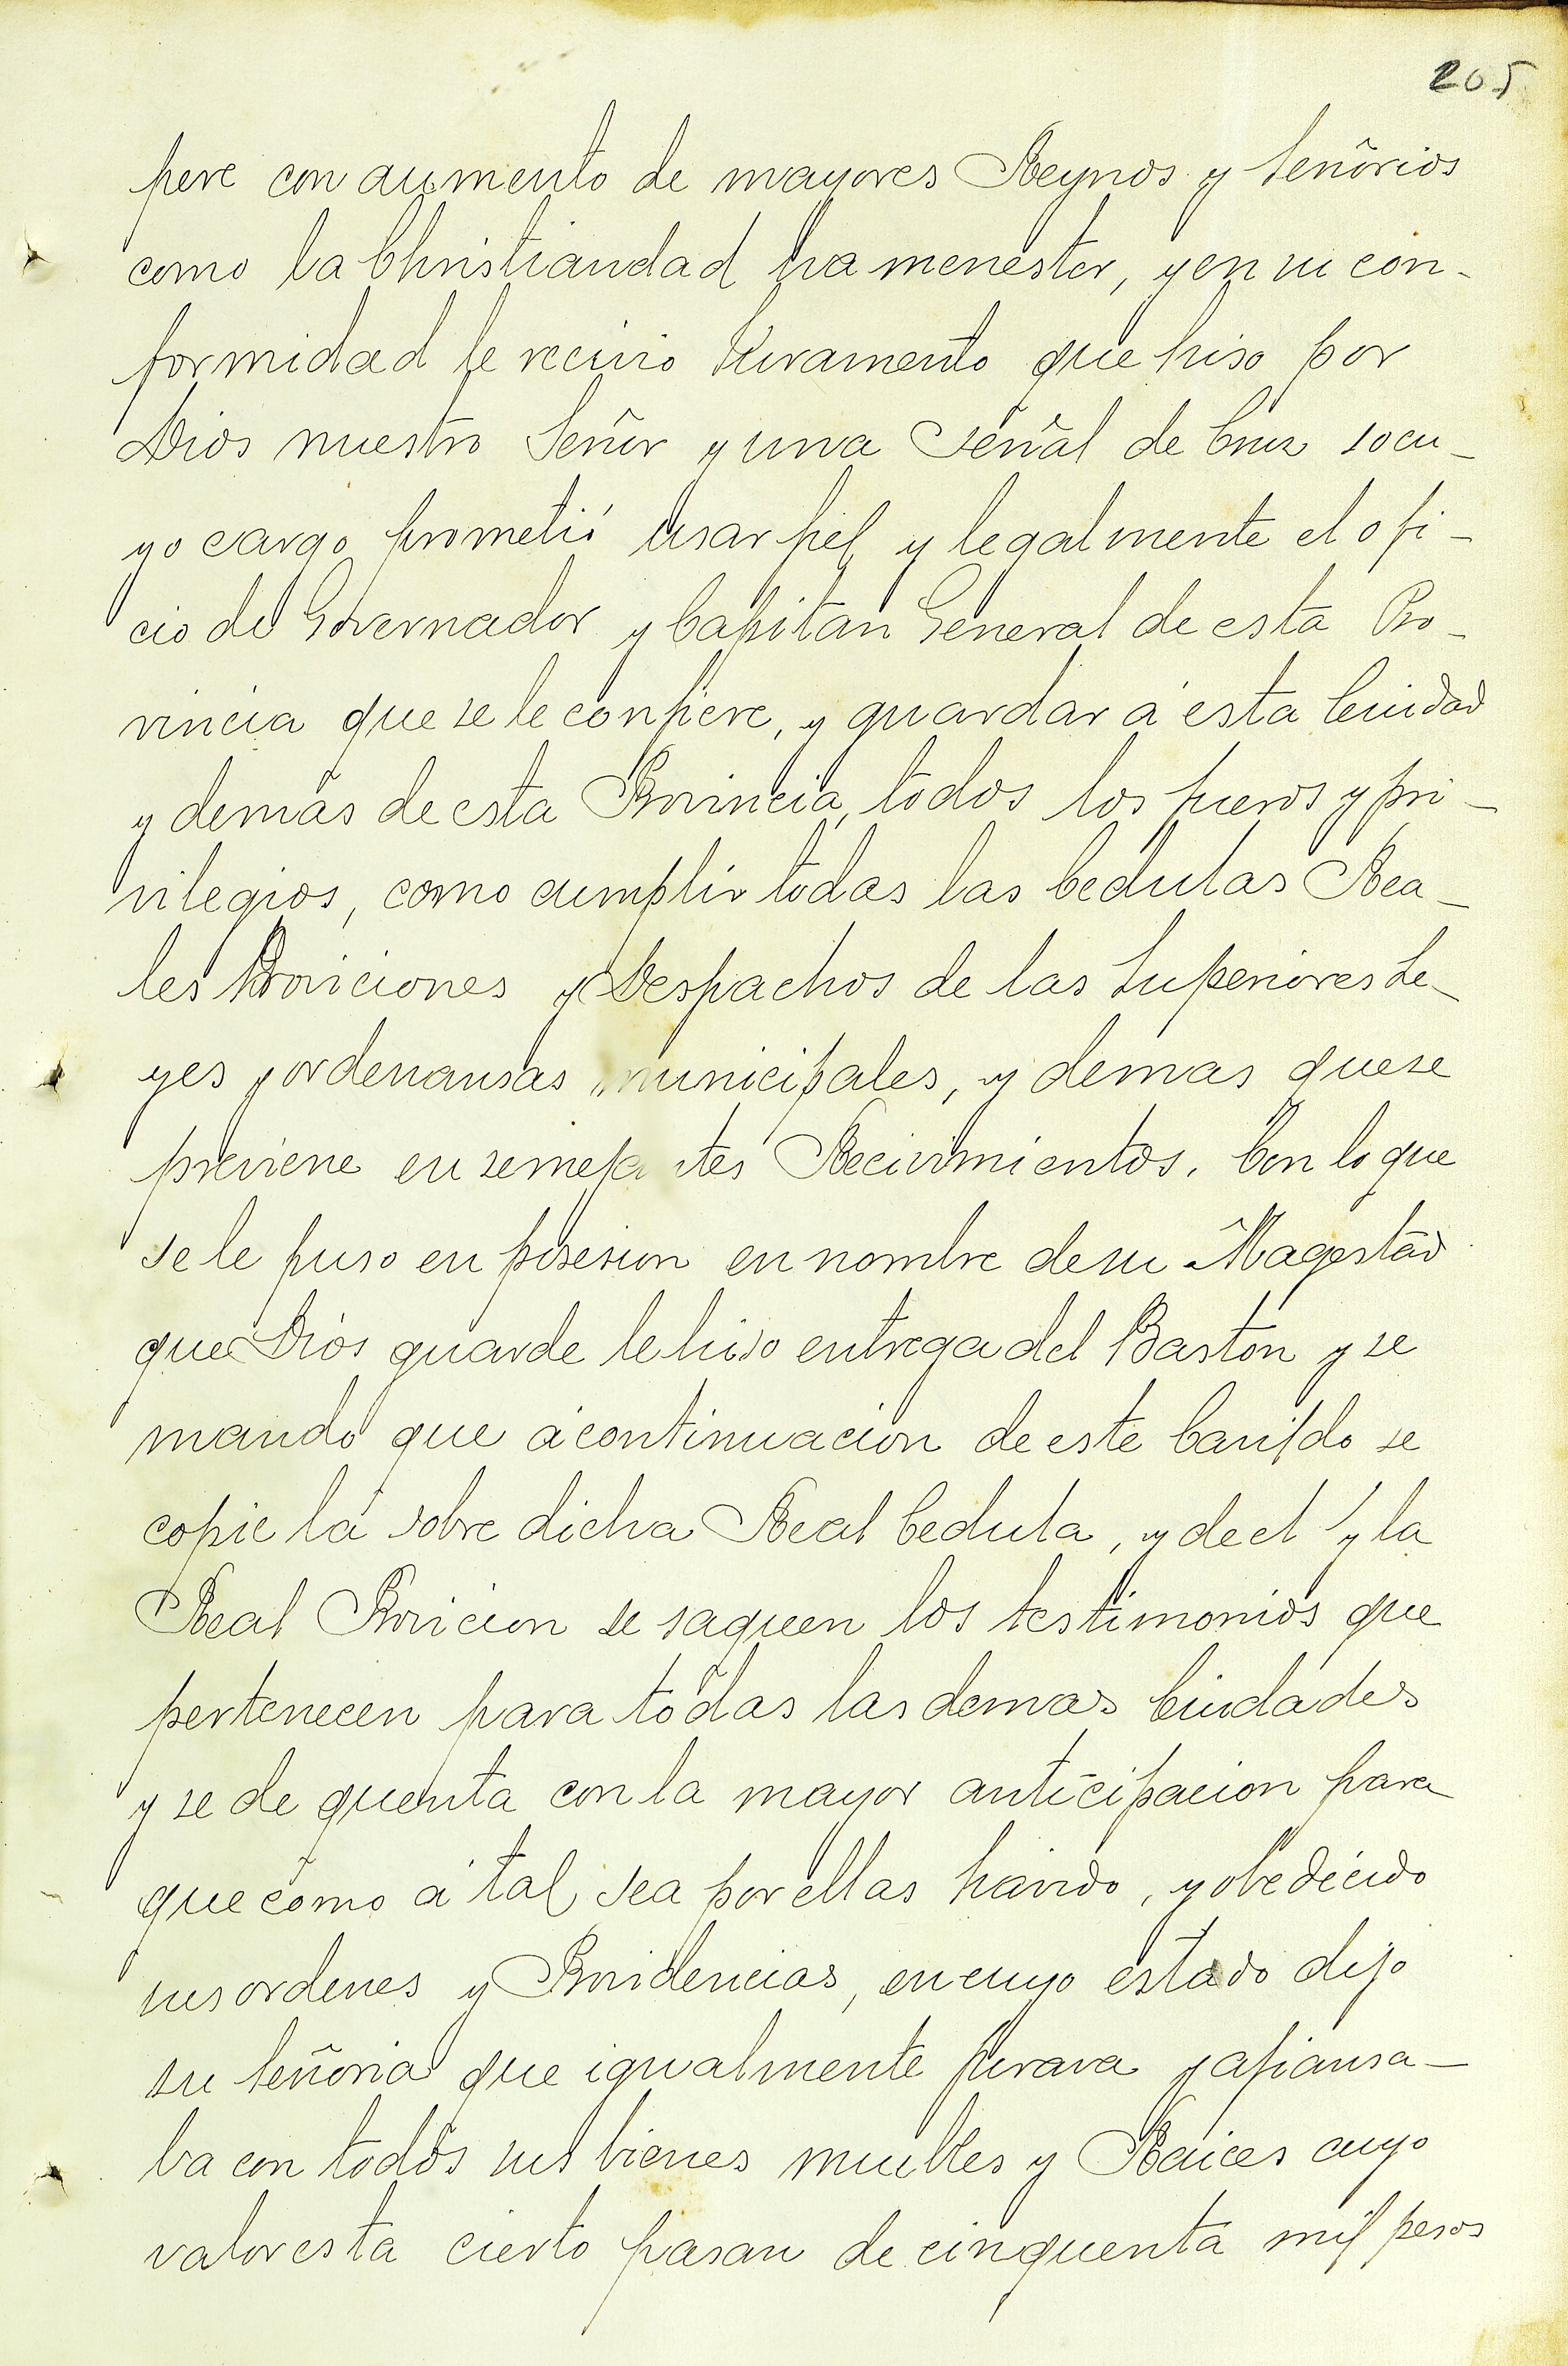 205
pere con aumento de mayores Reynos y Señorios
como la Christiandad ha menester, y en su con-
formidad se recivio Juramento que hiso por
Dios nuestro Señor y una señal de Cruz socu-
yo cargo prometió usar fiel y legalmente el ofi-
cio de Governador y Capitan General de esta Pro-
vincia que se le confiere, y guardar á esta Ciudad
y demas de esta Provincia, todos los fueros y pri-
vilegios, como cumplir todas las Cedulas Rea-
les Proviciones y Despachos de las Superiores Le-
yes y ordenansas municipales, y demas que se
previene en semejantes Recivimientos. Con lo que
se le puso en posesion en nombre de su Magestad
que Dios guarde le hiso entrega del Baston y se
mando que á continuacion de este Cavildo se
copie la sobre dicha Real Cedula, y de el y la
Real Provicion se saquen los testimonios que
pertenecen para todas las demas Ciudades
y se de quenta con la mayor anticipacion para
que como á tal sea por ellas havido, y obedecido
sus ordenes y Providencias, en cuyo estado dijo
su Señoria que igualmente jurava y afiansa-
ba con todos sus bienes muebles y Raices cuyo
valor esta cierto pasan de cinquenta mil pesos